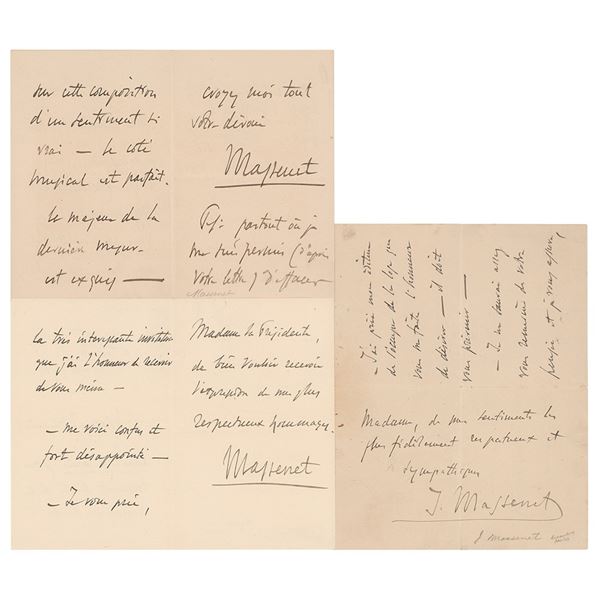 sur cette composition
d'un sentiment si
vrai — le coté
musical est parfait.
le majeur de la
dernière
est exquis —
croyez moi tout
votre dévoué
Massenet
PS. partout où je
me suis permis (d'après
votre lettre) d'effacer
Massenet
la très intéressante invitation
que j'ai l'honneur de recevoir
de vous même —
— me voici confus et
fort désappointé —
— Je vous prie,
Madame la Présidente,
de bien vouloir recevoir
l'expression de mes plus
respectueux hommages.
Massenet
— J'ai prié mon éditeur
de s'occuper de la
vous me faite l'honneur
de désirer — il doit
vous prévenir —
— Je ne saurais assez
vous remercier de votre
pensée et je vous assure,
Madame, de mes sentiments les
plus fidèlement respectueux et
sympathiques
J. Massenet
J Massenet